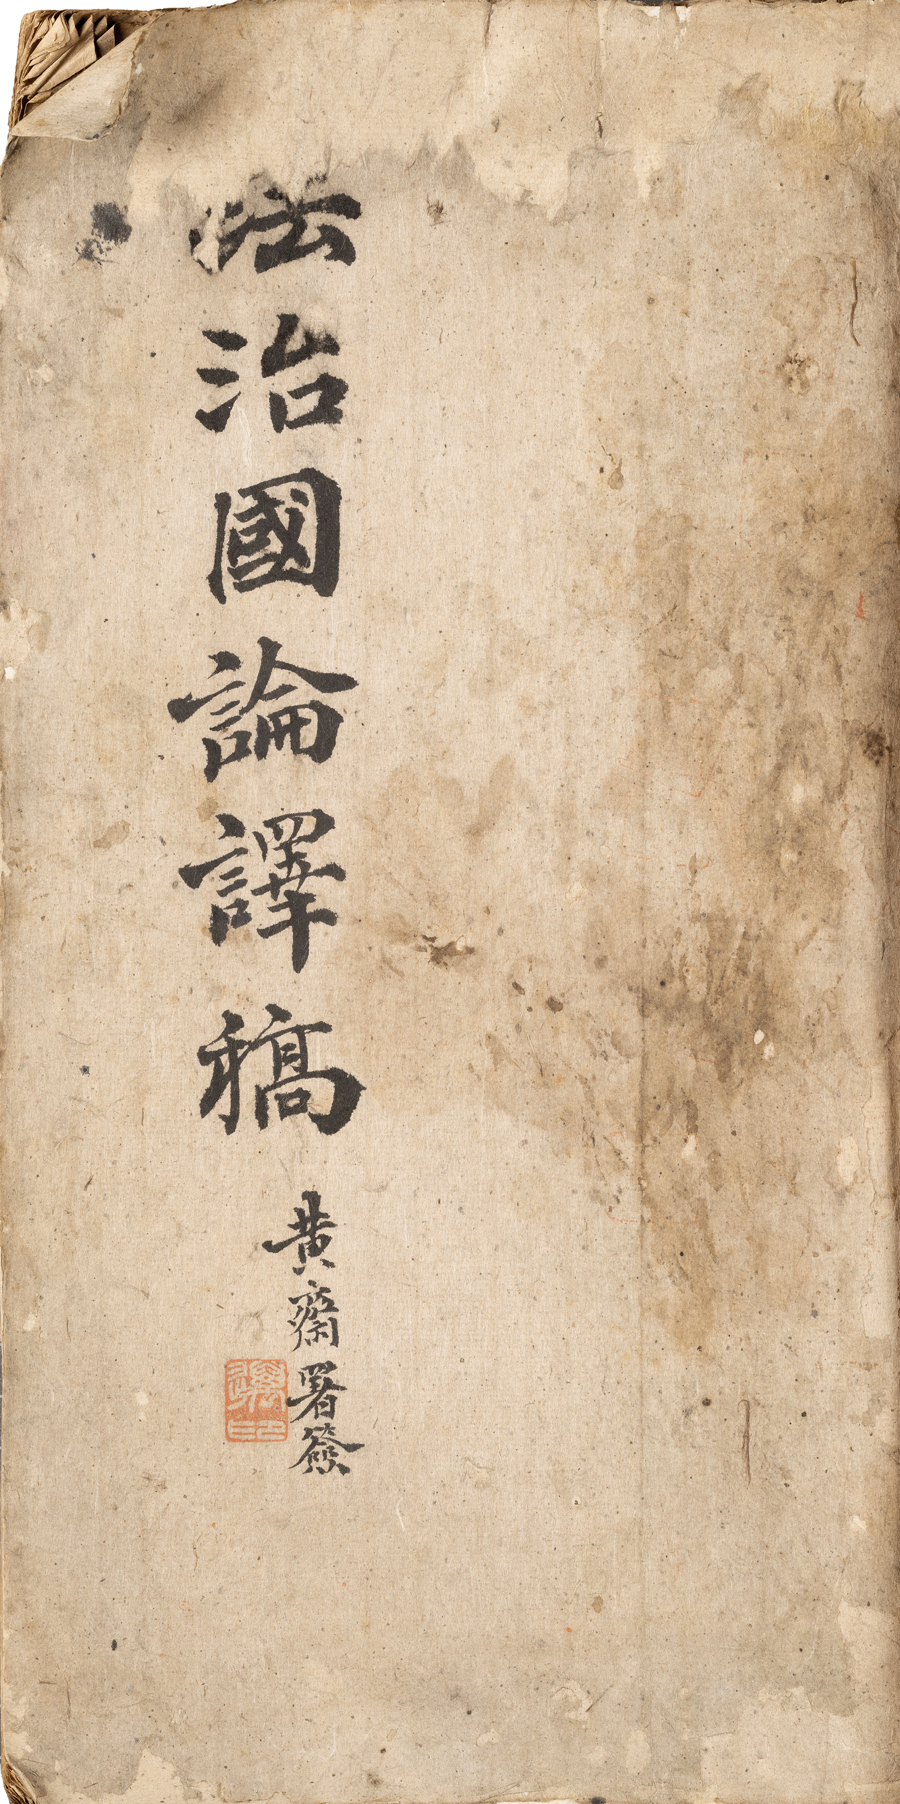 法治國論譯稿
黄齋署簽